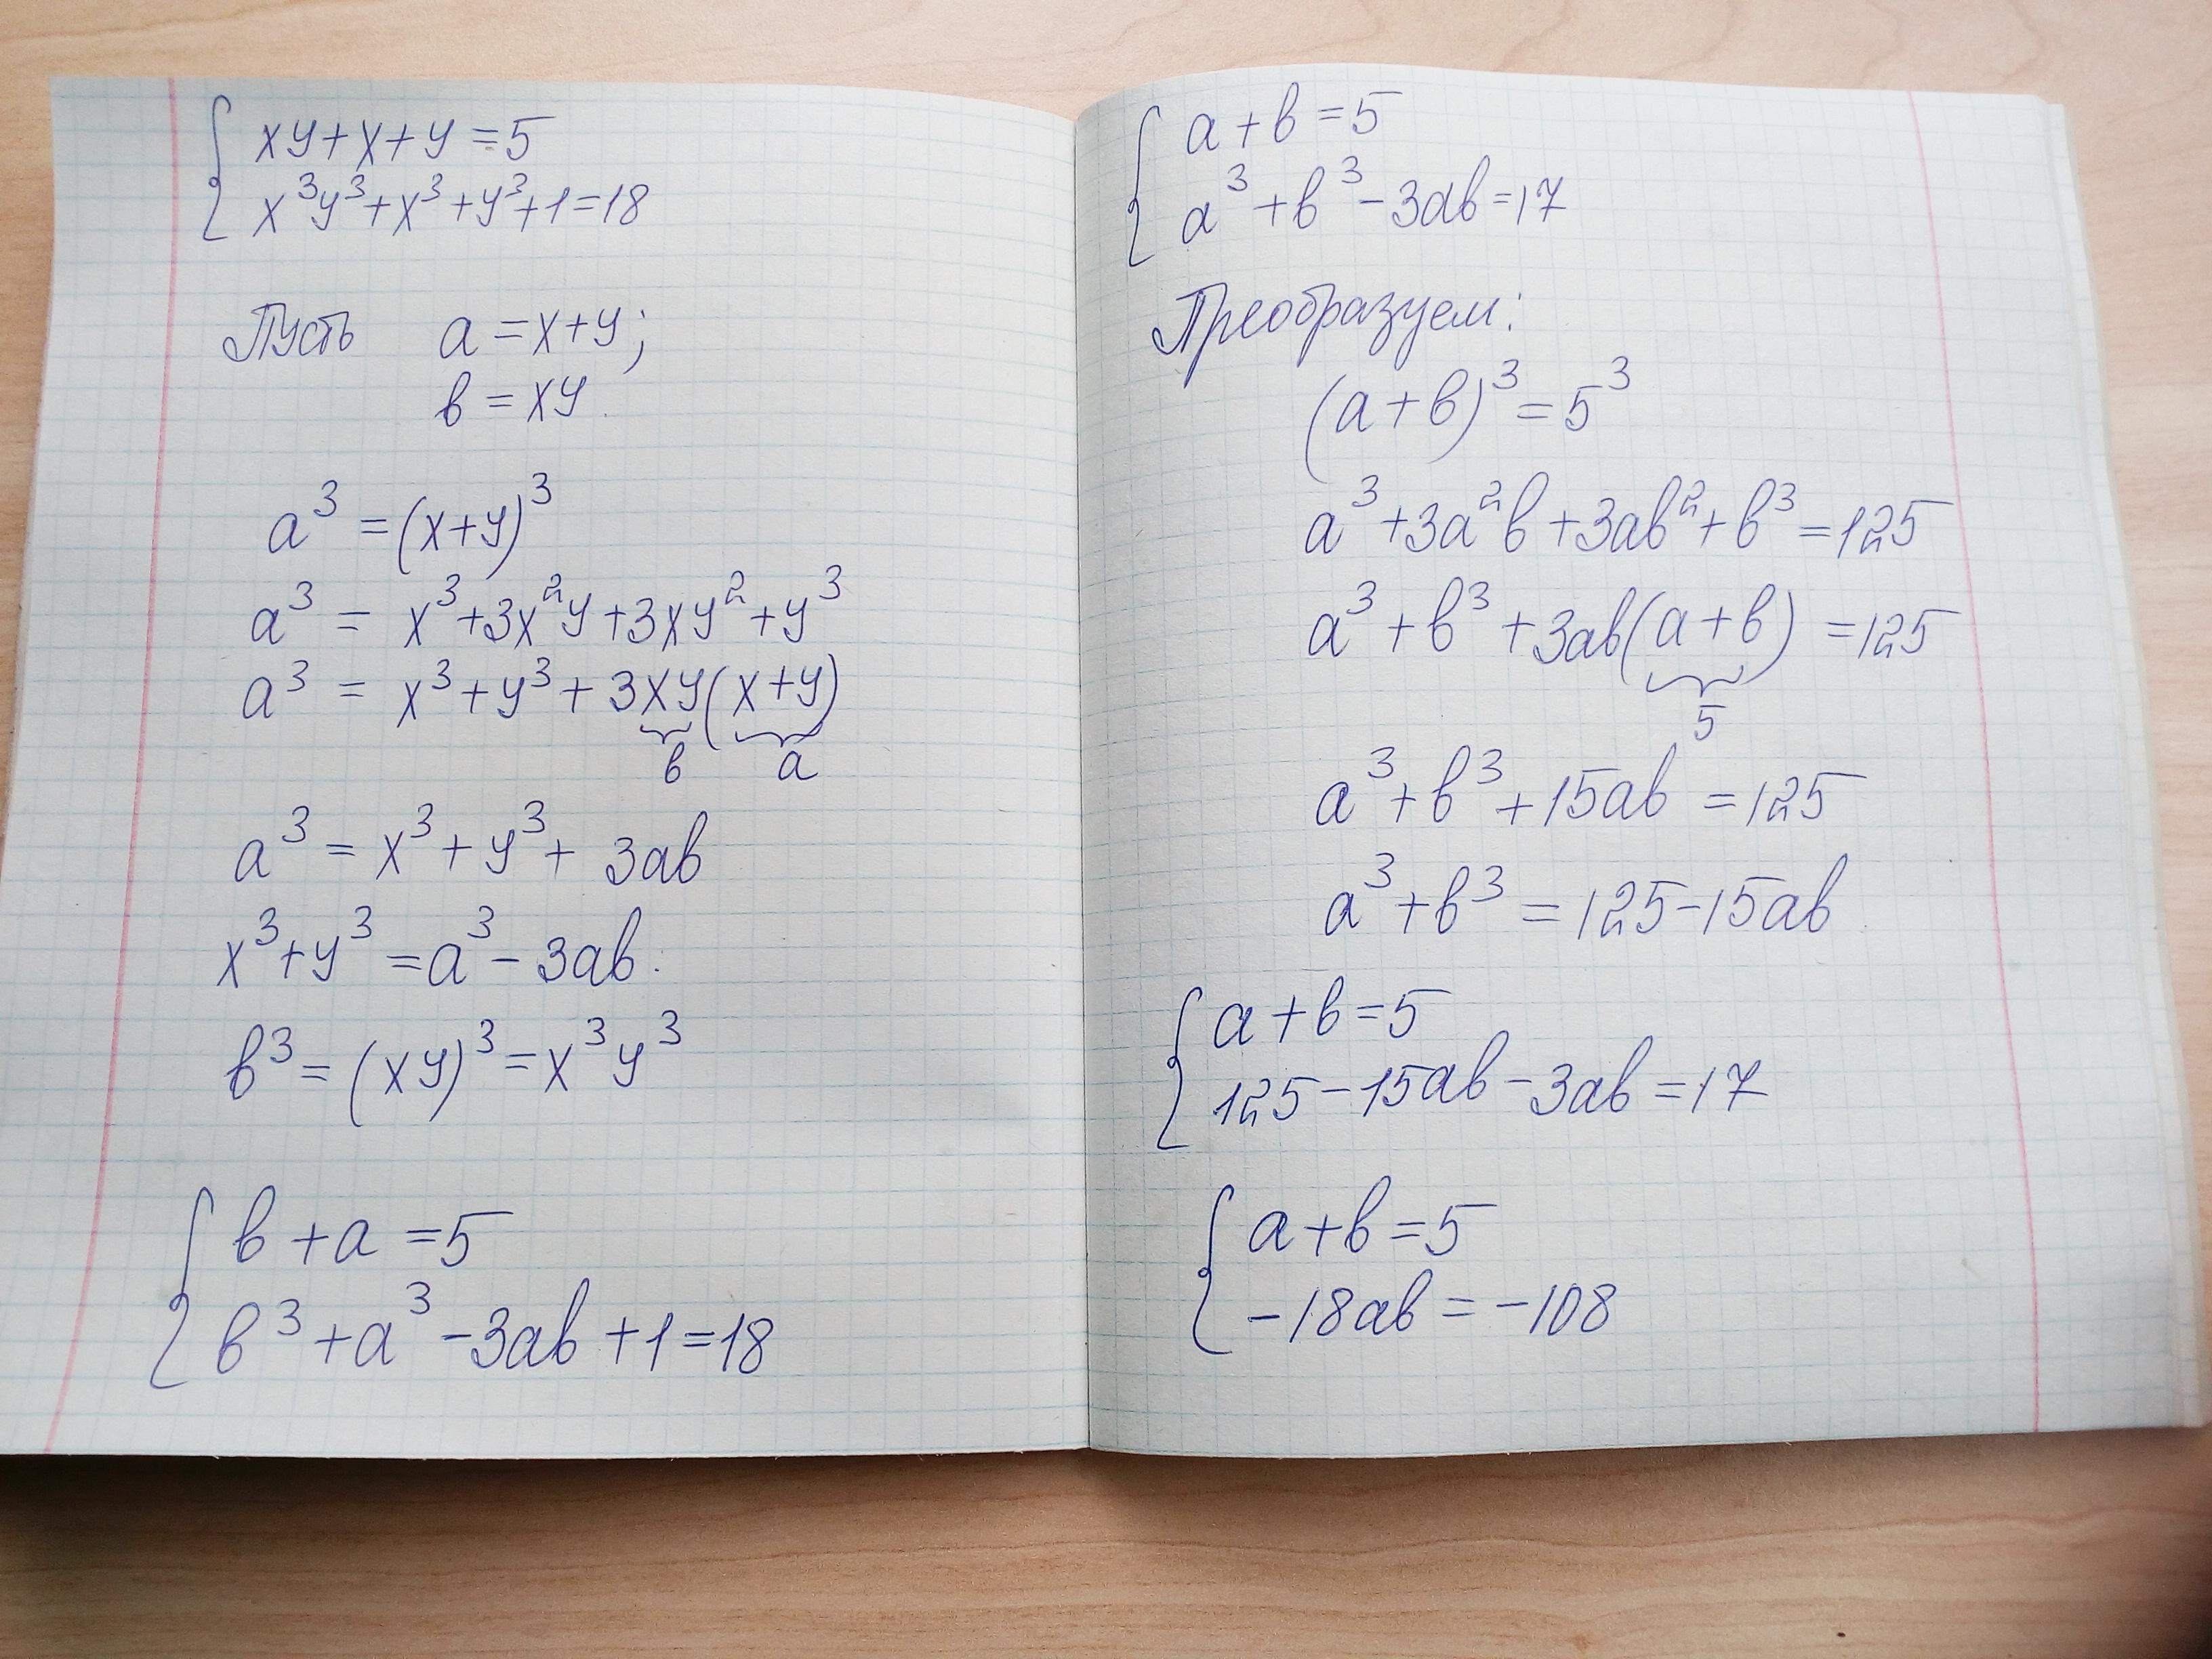 xy+x+y=5
x³y³+x³+y³+1=18
Пусть a=x+y;
b=xy.
a³=(x+y)³
a³=x³+3x²y+3xy²+y³
a³=x³+y³+3xy(x+y)
b a
a³=x³+y³+3ab
x³+y³=a³-3ab.
b³=(xy)³=x³y³
b+a=5
b³+a³-3ab+1=18
a+b=5
a³+b³-3ab=17
Преобразуем:
(a+b)³=5³
a³+3a²b+3ab²+b³=125
a³+b³+3ab(a+b)=125
5
a³+b³+15ab=125
a³+b³=125-15ab
a+b=5
125-15ab-3ab=17
a+b=5
-18ab=-108